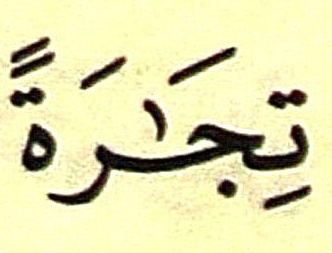 تِجَٰرَةً